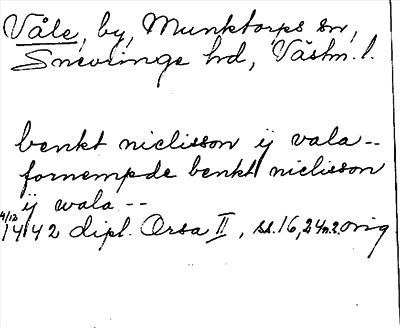 Våle, by, Munktorps sn,
Snevringe hd, Västm. l.
benkt niclisson ij vala --
fornempde benkt niclisson
ij wala --
4/12 1442 dipl. Orsa II, ss. 16, 24 n. 2. orig.